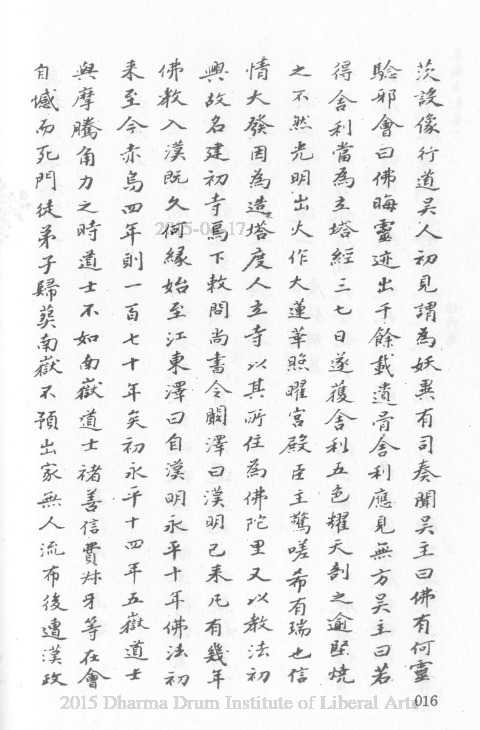 茨設像行道吳人初見謂為妖異有司奏聞吳主曰佛有何靈
驗邪會曰佛晦靈迹出千餘載遺骨舍利應見無方吳主曰若
得舍利當為立塔經三七日遂獲舍利五色耀天剖之逾堅燒
之不然光明出火作大蓮華照曜宮殿臣主驚嗟希有瑞也信
情大發因為造塔度人立寺以其所住為佛陀里又以教法初
興故名建初寺焉下敕問尚書令闞澤曰漢明已來凡有幾年
佛教入漢既久何緣始至江東澤曰自漢明永平十年佛法初
來至今赤烏四年則一百七十年矣初永平十四年五嶽道士
與摩騰角力之時道士不如南嶽道士褚善信費叔才等在會
自憾而死門徒弟子歸葬南嶽不預出家無人流布後遭漢政
2015 Dharma Drum Institute of Liberal Arts
016